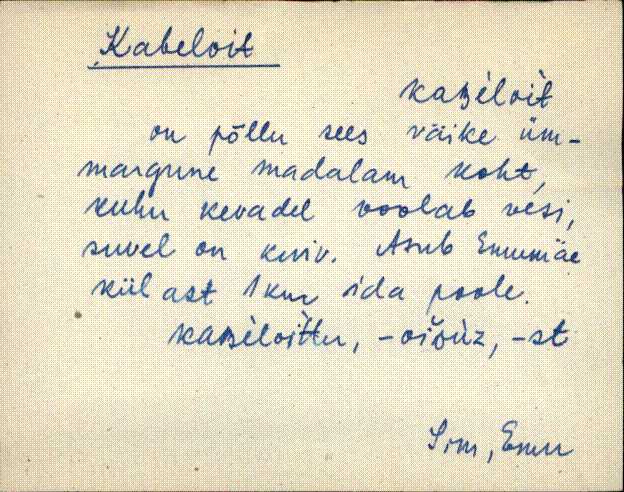 Kabeloit
kaʙèloit̀
on põllu sees väike üm-
margune madalam koht,
kuhu kevadel voolab vesi,
suvel on kuiv. Asub Emumäe
külast 1 km ida poole.
kaʙèloit̀tu,
Sim, Emu